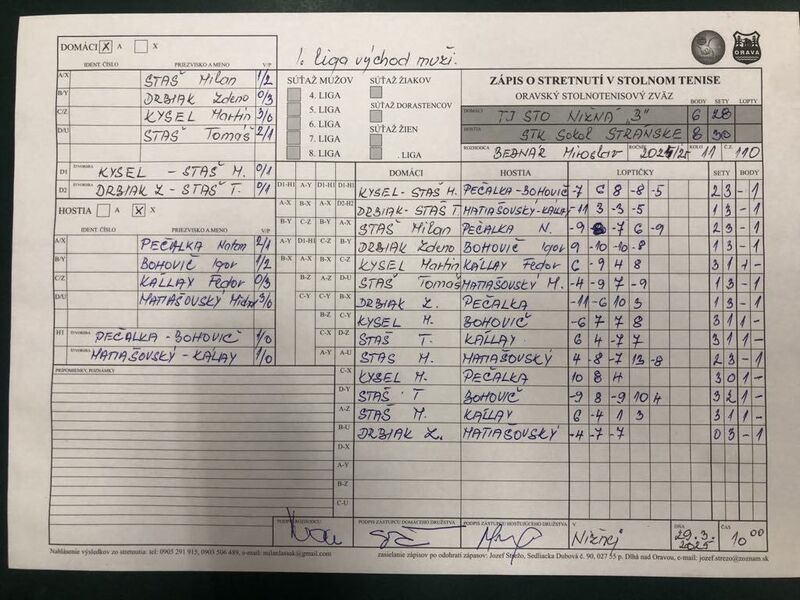 1. liga východ muži.
DOMÁCI X A X
IDENT. ČÍSLO PRIEZVISKO A MENO V/P
A/X STAŠ Milan 1/2
B/Y DRBIAK Zdeno 0/3
C/Z KYSEL Martin 3/0
D/U STAŠ Tomáš 2/1
D1 ŠTVORHRA KYSEL - STAŠ M. 0/1
D2 ŠTVORHRA DRBIAK Z - STAŠ T. 0/1
HOSTIA A X X
IDENT. ČÍSLO PRIEZVISKO A MENO V/P
A/X PEČALKA Natan 2/1
B/Y BOHOVIČ Igor 1/2
C/Z KÁLLAY Fedor 0/3
D/U MATIAŠOVSKÝ 3/0
H1 ŠTVORHRA PEČALKA - BOHOVIČ 1/0
ŠTVORHRA MATIAŠOVSKÝ - KÁLAY 1/0
PRIPOMIENKY, POZNÁMKY
SÚŤAŽ MUŽOV
4. LIGA
5. LIGA
6. LIGA
7. LIGA
8. LIGA
SÚŤAŽ ŽIAKOV
SÚŤAŽ DORASTENCOV
SÚŤAŽ ŽIEN
. LIGA
ORAVA
ZÁPIS O STRETNUTÍ V STOLNOM TENISE
ORAVSKÝ STOLNOTENISOVÝ ZVÄZ
BODY SETY LOPTY
DOMÁCI TJ ŠTO NIŽNÁ „B" 6 28
HOSTIA STK Sokol STRÁNSKE 8 30
ROZHODCA BEDNÁR Miroslav ROČNÍK 2024/25 KOLO 11 Č.Z. 110
DOMÁCI HOSTIA LOPTIČKY SETY BODY
D1-H1 A-Y D1-H1 D1-H1 KYSEL - STAŠ M. PEČALKA - BOHOVIČ -7 6 8 -8 -5 2 3 - 1
A-X B-X A-X D2-H2 DRBIAK - STAŠ T. MATIAŠOVSKÝ-KÁLAY -11 3 -3 -5 1 3 - 1
B-Y C-Z B-Y A-X STAŠ Milan PEČALKA N. -9 8 -7 6 -9 2 3 - 1
A-Y D1-H1 C-Z B-Y DRBIAK Zdeno BOHOVIČ Igor 9 -10 -10 -8 1 3 - 1
B-X A-X A-Y C-Z KYSEL Martin KÁLLAY Fedor 6 -9 4 8 3 1 1 -
B-Z A-Z D-U STAŠ Tomáš MATIAŠOVSKÝ M. -4 -9 7 -9 1 3 - 1
C-Y B-Y B-X DRBIAK Z. PEČALKA -11 -6 10 3 1 3 - 1
B-Z C-Y KYSEL M. BOHOVIČ -6 7 7 8 3 1 1 -
C-X D-Z STAŠ T. KÁLLAY 6 4 -7 7 3 1 1 -
A-Y A-U STAŠ M. MATIAŠOVSKÝ 4 -8 -7 13 -8 2 3 - 1
C-X KYSEL M. PEČALKA 10 8 4 3 0 1 -
D-Y STAŠ T BOHOVIČ -9 8 -9 10 4 3 2 1 -
A-Z STAŠ M. KÁLLAY 6 -4 1 3 3 1 1 -
B-U DRBIAK Z. MATIAŠOVSKÝ -4 -7 -7 0 3 - 1
D-X
A-Y
B-Z
C-U
PODPIS ROZHODCU PODPIS ZÁSTUPCU DOMÁCEHO DRUŽSTVA PODPIS ZÁSTUPCU HOSŤUJÚCEHO DRUŽSTVA V Nižnej DŇA 29.3. 2025 ČAS 10 00
Nahlásenie výsledkov zo stretnutia: tel: 0905 291 915, 0903 506 489, e-mail: milanlassak@gmail.com zasielanie zápisov po odohratí zápasov: Jozef Strežo, Sedliacka Dubová č. 90, 027 55 p. Dlhá nad Oravou, e-mail: jozef.strezo@zoznam.sk